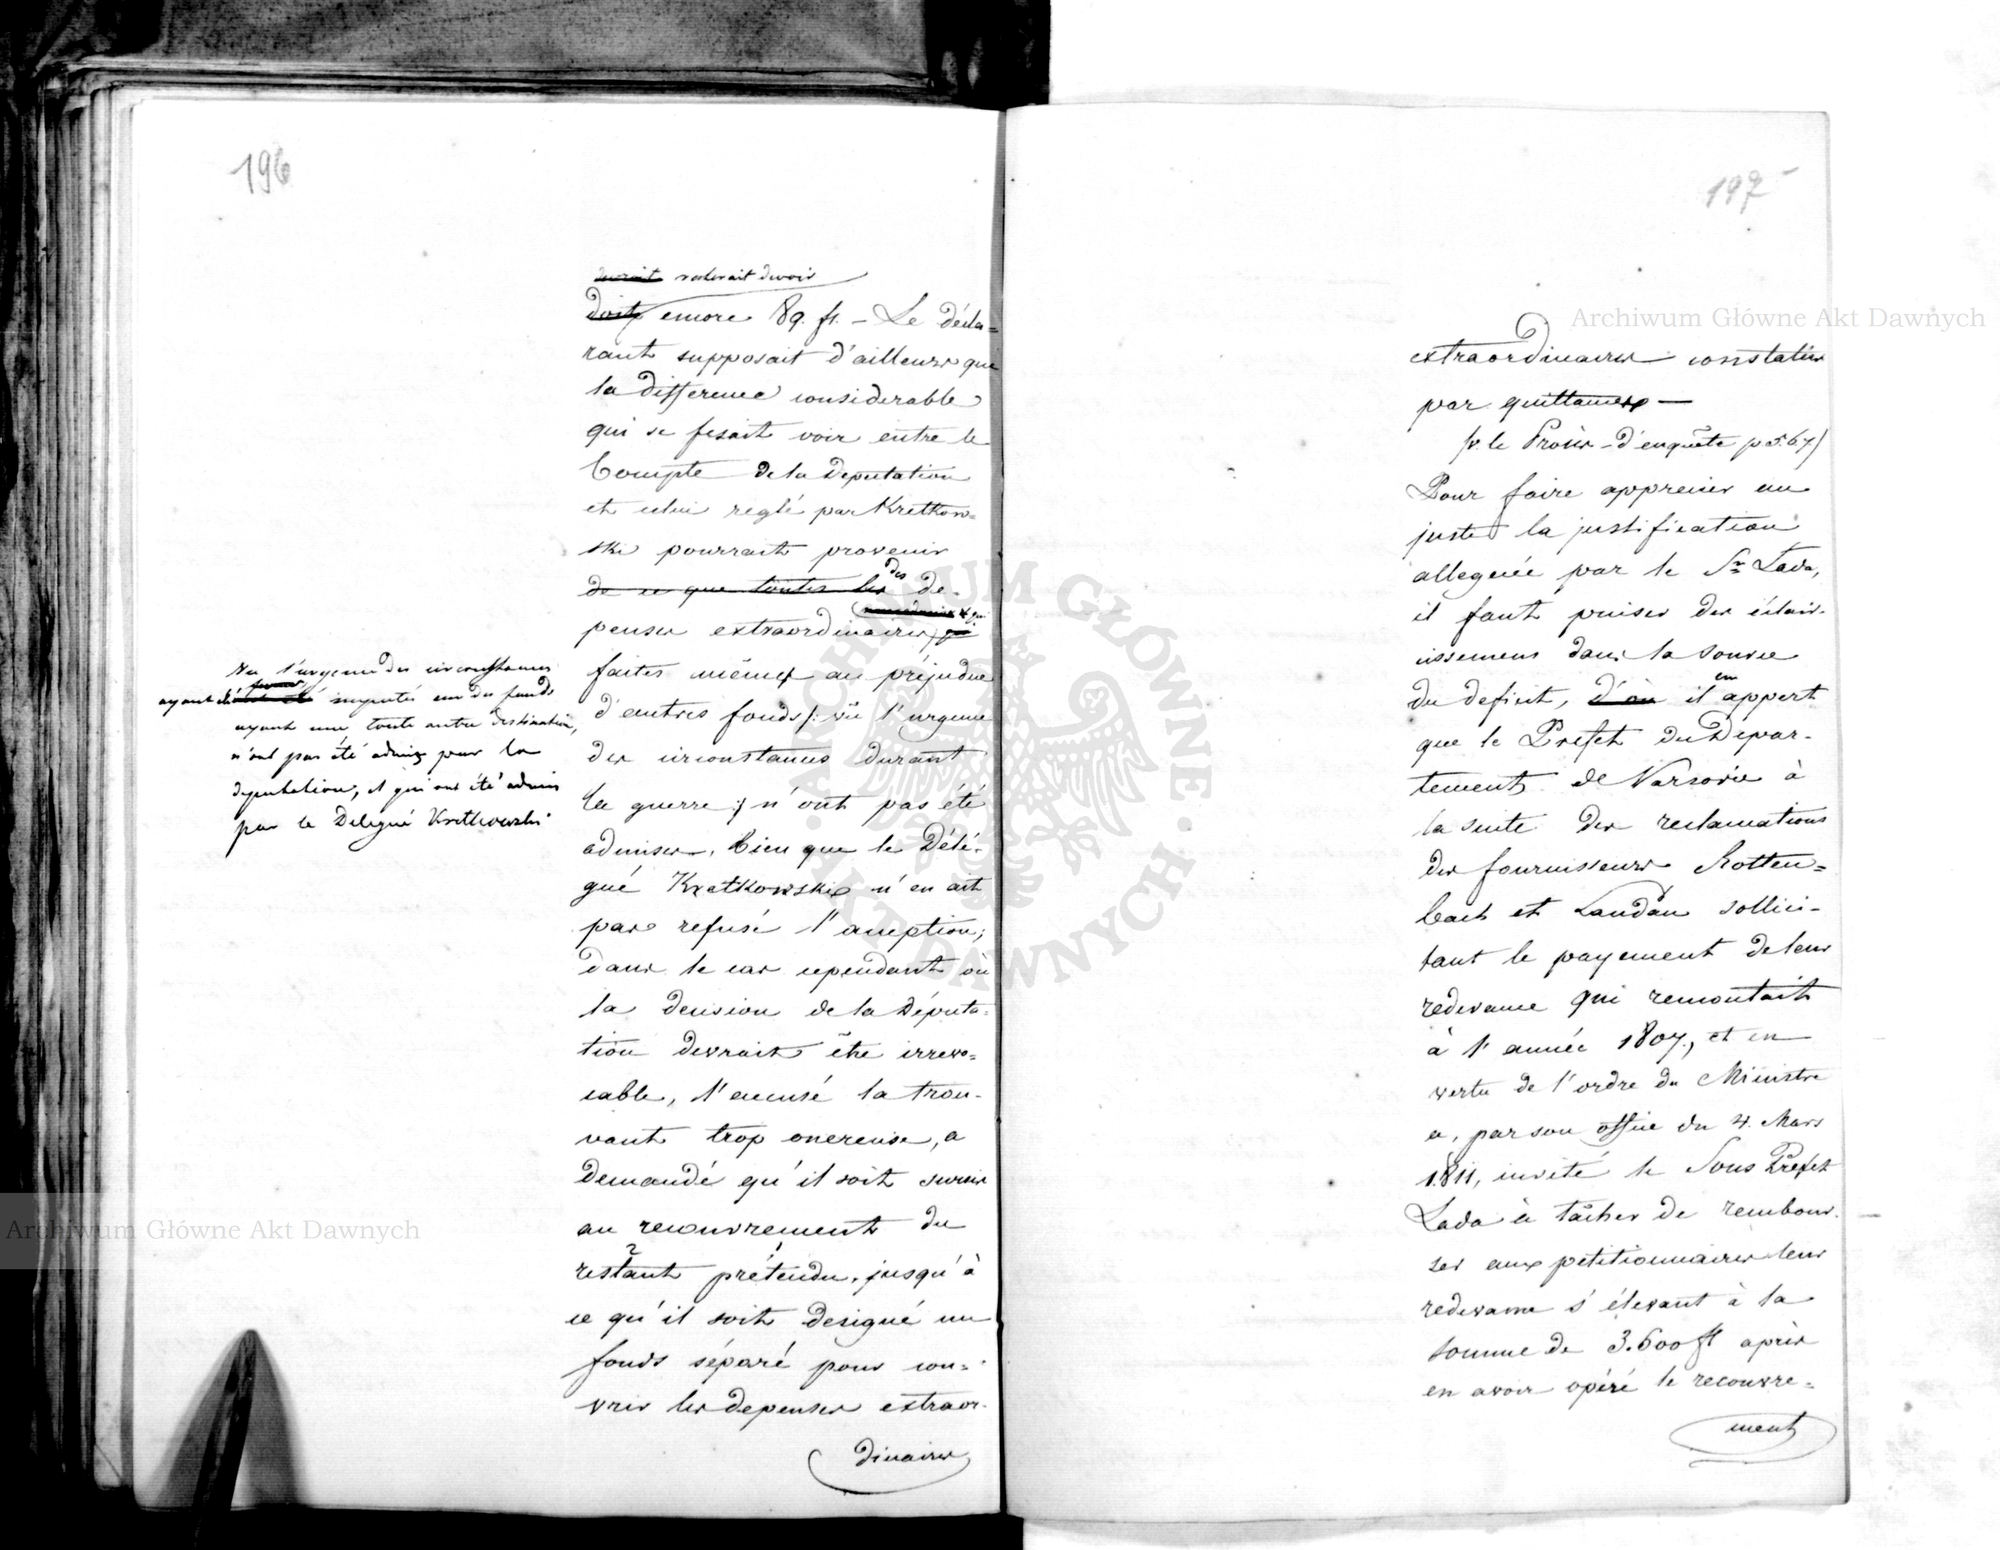 196
resterait devoir
doit encore 89. fl. – Le décla=
rant supposait d'ailleurs que
la difference considerable
qui se fesait voir entre le
Compte de la Deputation
et celui reglé par Kretkow=
ski pourrait provenir
de ce que toutes les des de-
penses extraordinaires, qui
faites même au préjudice
d'autres fonds /: vû l'urgence
des circonstances durant
la guerre :/ n'ont pas été
admises, bien que le Délé-
gué Kretkowski n'en ait
pas refusé l'acception;
dans le cas cependant où
la decision de la Députa-
tion devrait être irrevo=
cable, l'accusé la trou-
vant trop onereuse, a
demandé qu'il soit sursis
au recouvrement du
restant prétendu, jusqu'à
ce qu'il soit designé un
fonds séparé pour cou=
vrir les depenses extraor-
dinaires
Vu l'urgence des circonstances
ayant imputés sur des fonds
ayant une toute autre destination,
n'ont pas été admis par la
deputation, et qui ont été admis
par le Delegué Kretkowski
197
extraordinaires constatées
par quittances —
/v. le Procès-d'enquête p 5.67/
Pour faire apprecier au
juste la justification
alleguée par le Sr. Lada,
il faut puiser des éclair-
cissemens dans la source
du deficit, d'où il en appert
que le Préfet du Depar-
tement de Varsovie à
la suite des reclamations
des fournisseurs Rotten=
bach et Landau sollici-
tant le payement de leur
redevance qui remontait
à l'année 1807, et en
vertu de l'ordre du Ministre
a, par son office du 4. Mars
1811, invité le Sous Préfet
Lada à tâcher de rembour-
ser aux petitionnaires leur
redevance s'élevant à la
somme de 3.600 fl après
en avoir opéré le recouvre=
ment
Archiwum Główne Akt Dawnych
Archiwum Główne Akt Dawnych
ARCHIWUM GŁÓWNE AKT DAWNYCH